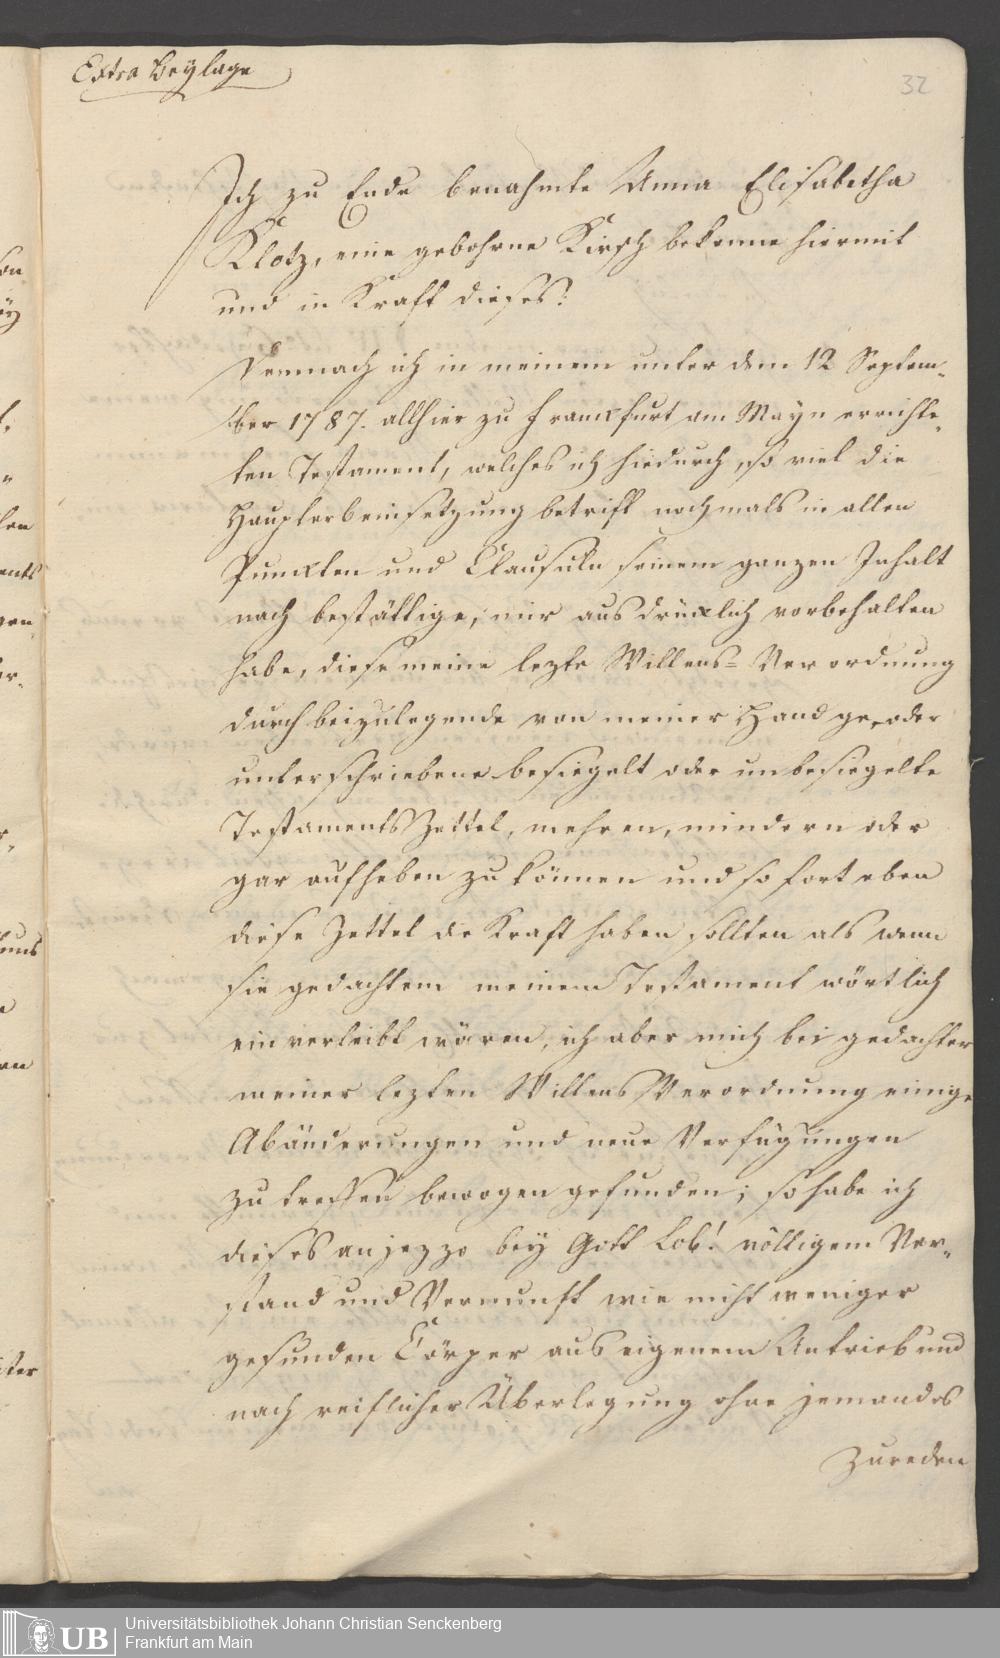 Extra Beylage
32
Ich zu Ende benahmte Anna Elisabetha
Klotz, eine gebohrne Kirsch bekenne hiermit
und in Kraft dieses:
Demnach ich in meinem unter dem 12 Septem-
ber 1787. allhier zu Franckfurt am Mayn errichte-
ten Testament, welches ich hiedurch, so viel die
Haupterbeinsetzung betrift nochmals in allen
Punckten und Clausuln seinem ganzen Inhalt
nach bestättige, mir ausdrücklich vorbehalten
habe, diese meine lezte Willens-Verordnung
durch beizulegende von meiner Hand ge- oder
unterschriebene besiegelt oder unbesiegelte
Testaments Zettel, mehren, mindern oder
gar aufheben zu können und so fort eben
diese Zettel die Kraft haben sollten als wenn
sie gedachtem meinem Testament wörtlich
einverleibt wären, ich aber mich bei gedachter
meiner lezten Willens Verordnung einige
Abänderungen und neue Verfügungen
zu treffen bewogen gefunden; so habe ich
dieses anjezzo bey Gott Lob! völligem Ver-
stand und Vernunft wie nicht weniger
gesunden Cörper aus eigenem Antrieb und
nach reiflicher Überlegung ohne jemandes
Zureden
UB
Universitätsbibliothek Johann Christian Senckenberg
Frankfurt am Main